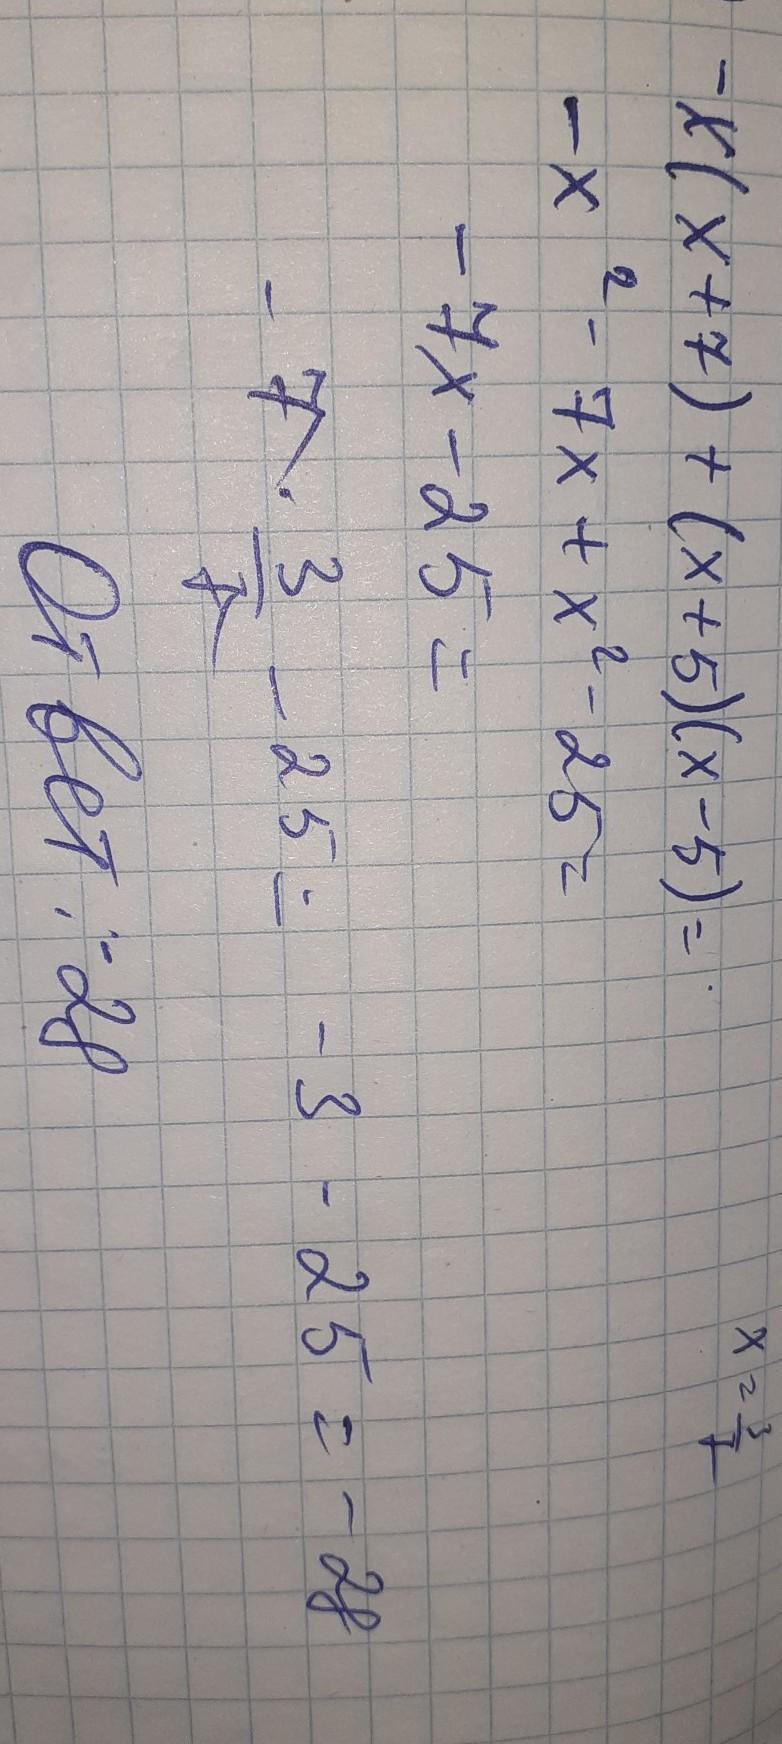 -x(x+7)+(x+5)(x-5)= x=3/7
-x²-7x+x²-25=
-7x-25=
-7·3/7-25= -3-25=-28
Ответ:-28